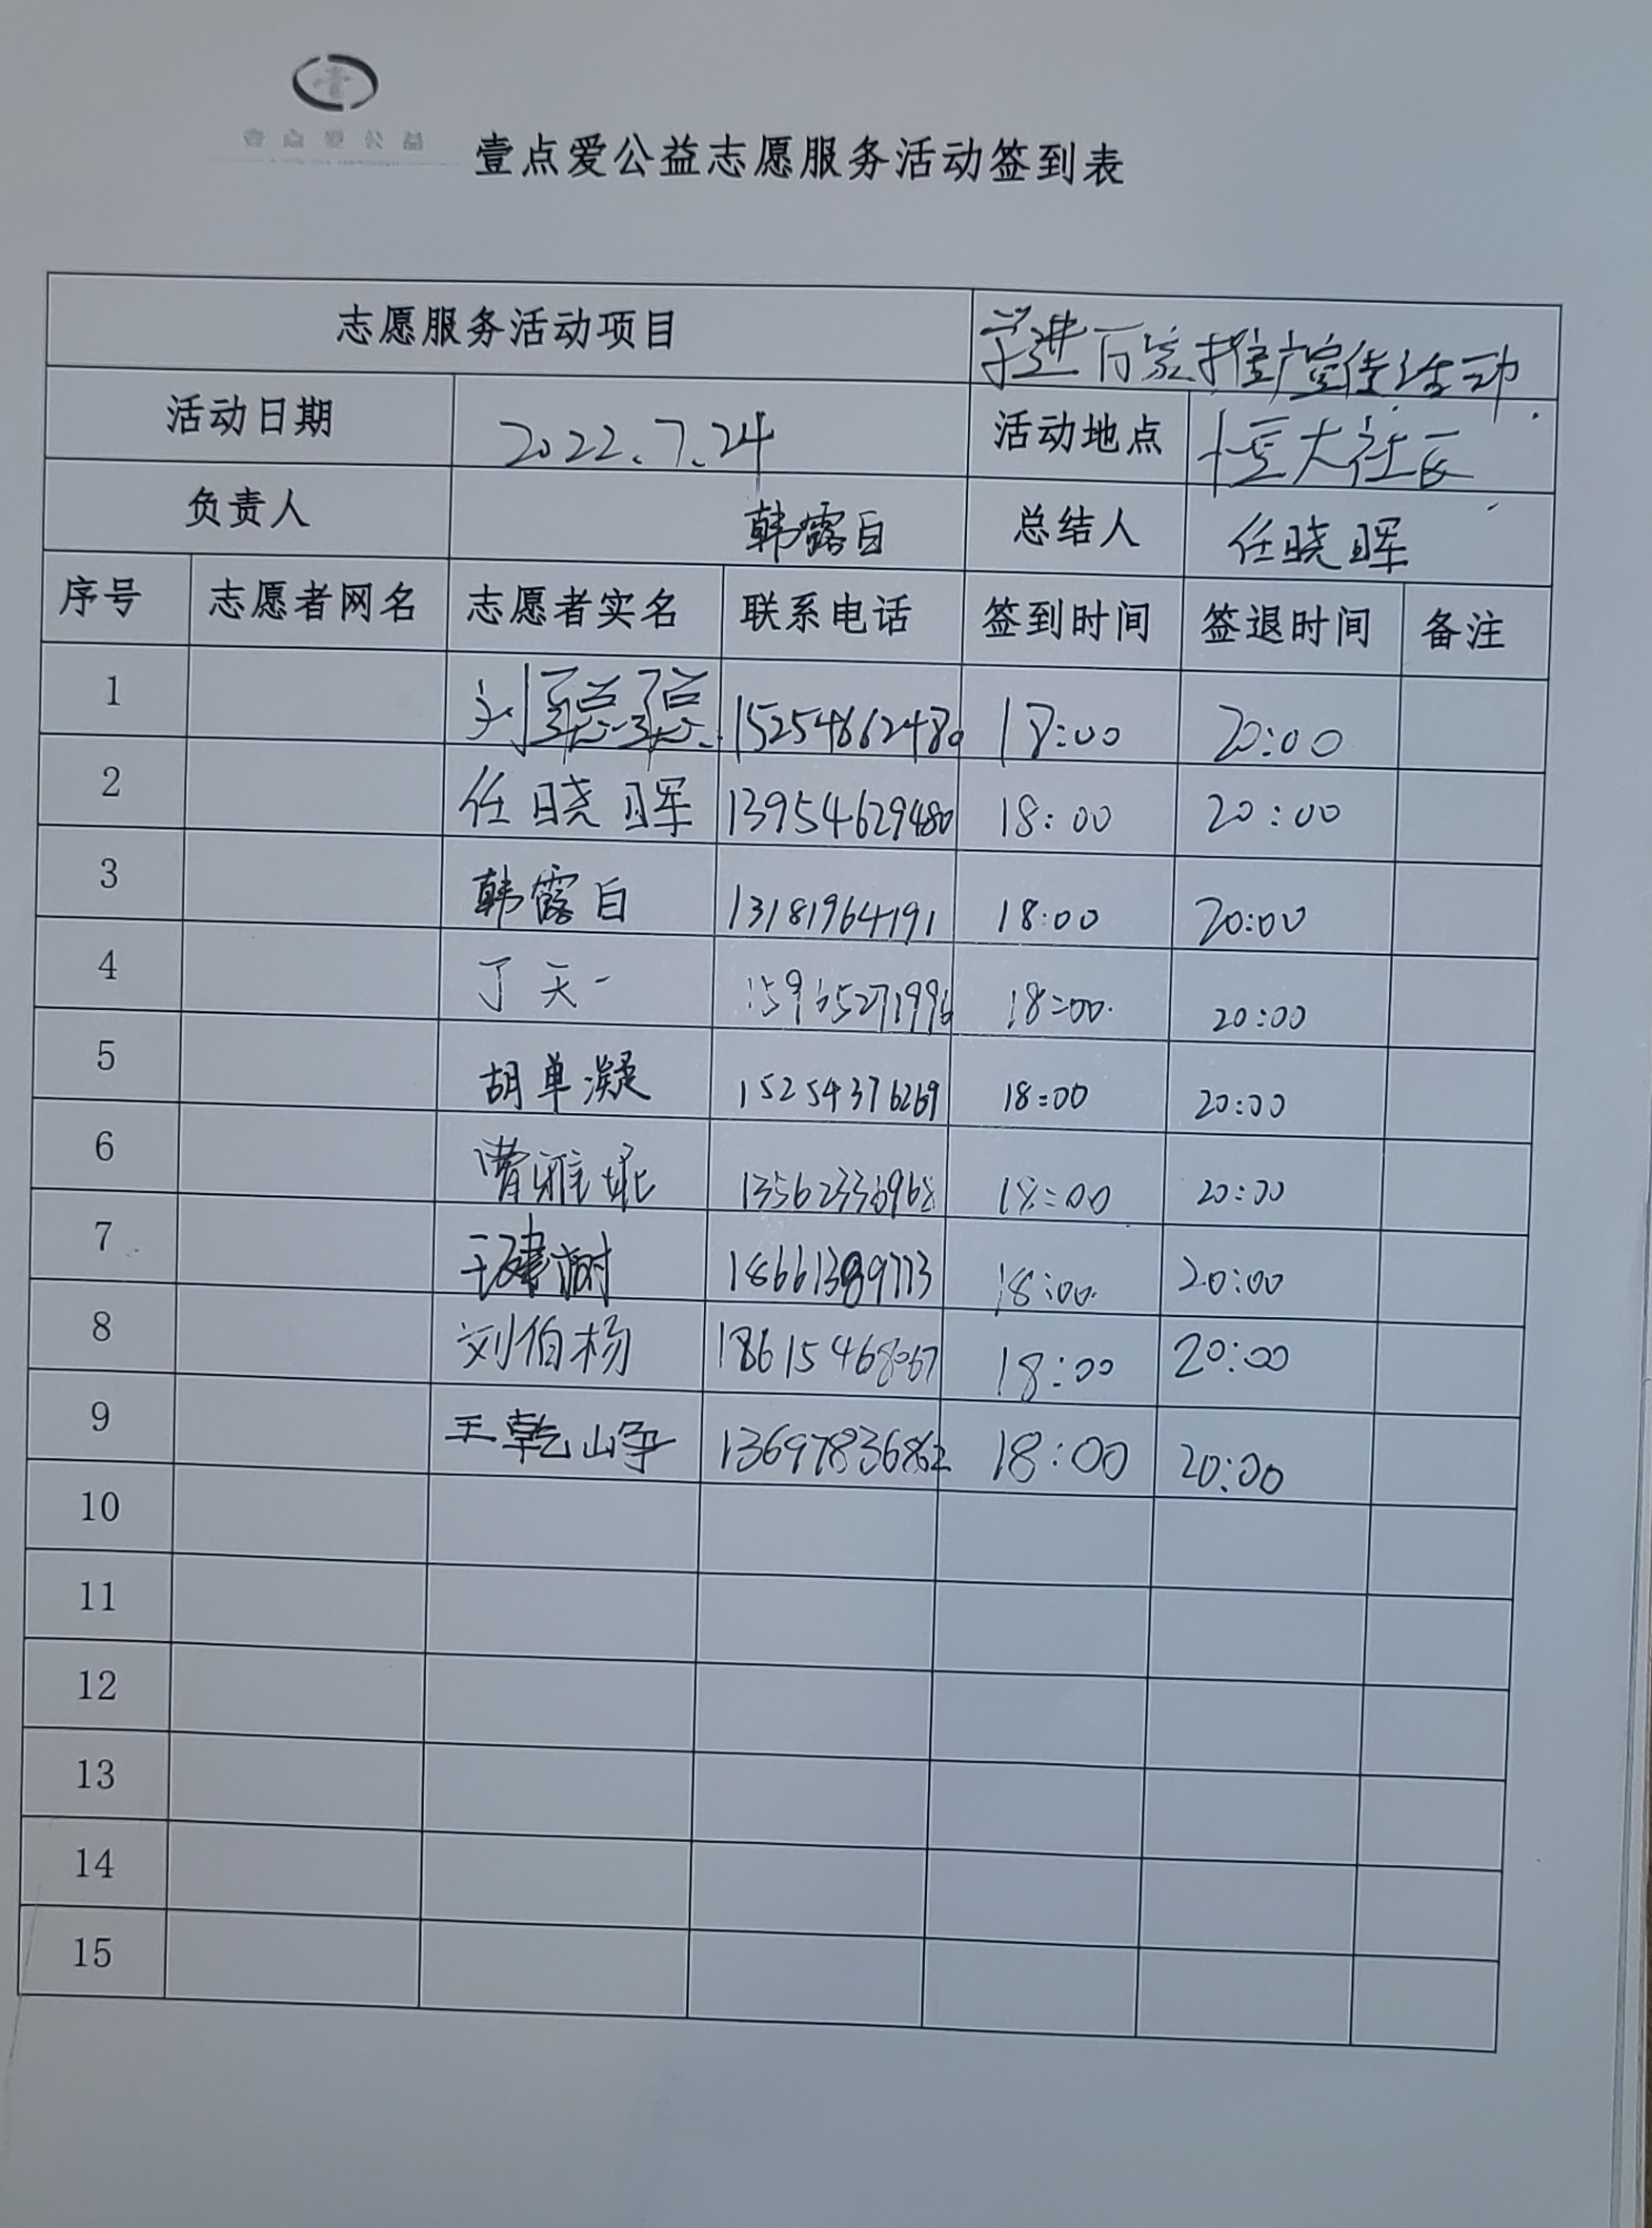 壹点爱公益
壹点爱公益志愿服务活动签到表
志愿服务活动项目 学进百家推广宣传活动.
活动日期 2022.7.24 活动地点 恒大社区
负责人 韩露白 总结人 任晓晖
序号 志愿者网名 志愿者实名 联系电话 签到时间 签退时间 备注
1 刘聪聪 15254662480 18:00 20:00
2 任晓晖 13954629480 18:00 20:00
3 韩露白 13181964191 18:00 20:00
4 丁天一 15965271996 18:00 20:00
5 胡单凝 15254376269 18:00 20:00
6 曹雅妮 13562336968 18:00 20:00
7 王建树 18661389773 18:00 20:00
8 刘伯杨 18615468067 18:00 20:00
9 王乾峥 13697836862 18:00 20:00
10
11
12
13
14
15